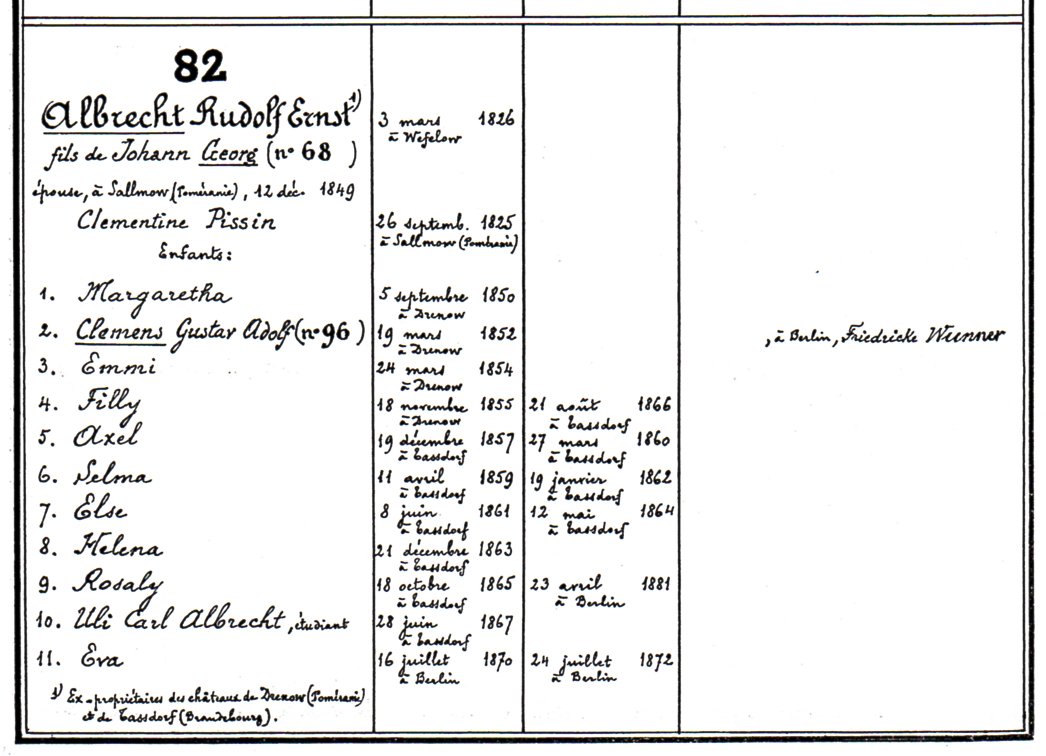 82
Albrecht Rudolf Ernst 1)
3 mars 1826
à Wefelow
fils de Johann Georg (nº 68 )
épouse, à Sallmow (Poméranie), 12 déc. 1849
Clementine Pissin
26 septemb. 1825
à Sallmow (Poméranie)
Enfants:
1. Margaretha 5 septembre 1850
à Drenow
2. Clemens Gustav Adolf (nº 96 ) 19 mars 1852 , à Berlin, Friedricke Wunner
à Drenow
3. Emmi 24 mars 1854
à Drenow
4. Filly 18 novembre 1855 21 août 1866
à Drenow à Tassdorf
5. Axel 19 décembre 1857 27 mars 1860
à Tassdorf à Tassdorf
6. Selma 11 avril 1859 19 janvier 1862
à Tassdorf à Tassdorf
7. Else 8 juin 1861 12 mai 1864
à Tassdorf à Tassdorf
8. Helena 21 décembre 1863
à Tassdorf
9. Rosaly 18 octobre 1865 23 avril 1881
à Tassdorf à Berlin
10. Uli Carl Albrecht, étudiant 28 juin 1867
à Tassdorf
11. Eva 16 juillet 1870 24 juillet 1872
à Berlin à Berlin
1) Ex-propriétaires des châteaux de Drenow (Poméranie)
et de Tassdorf (Brandebourg).